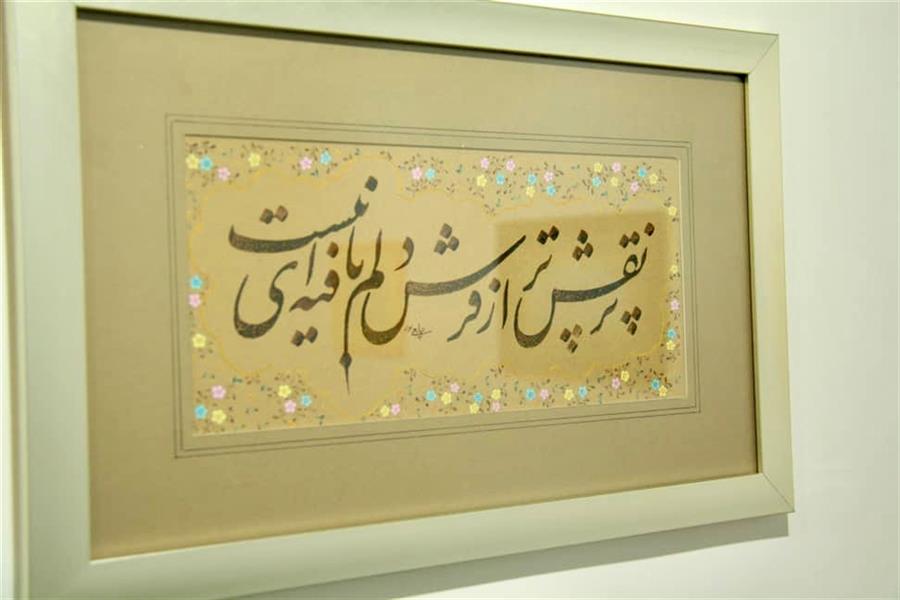 پر نقش‌تر از فرش دلم بافته‌ای نیست